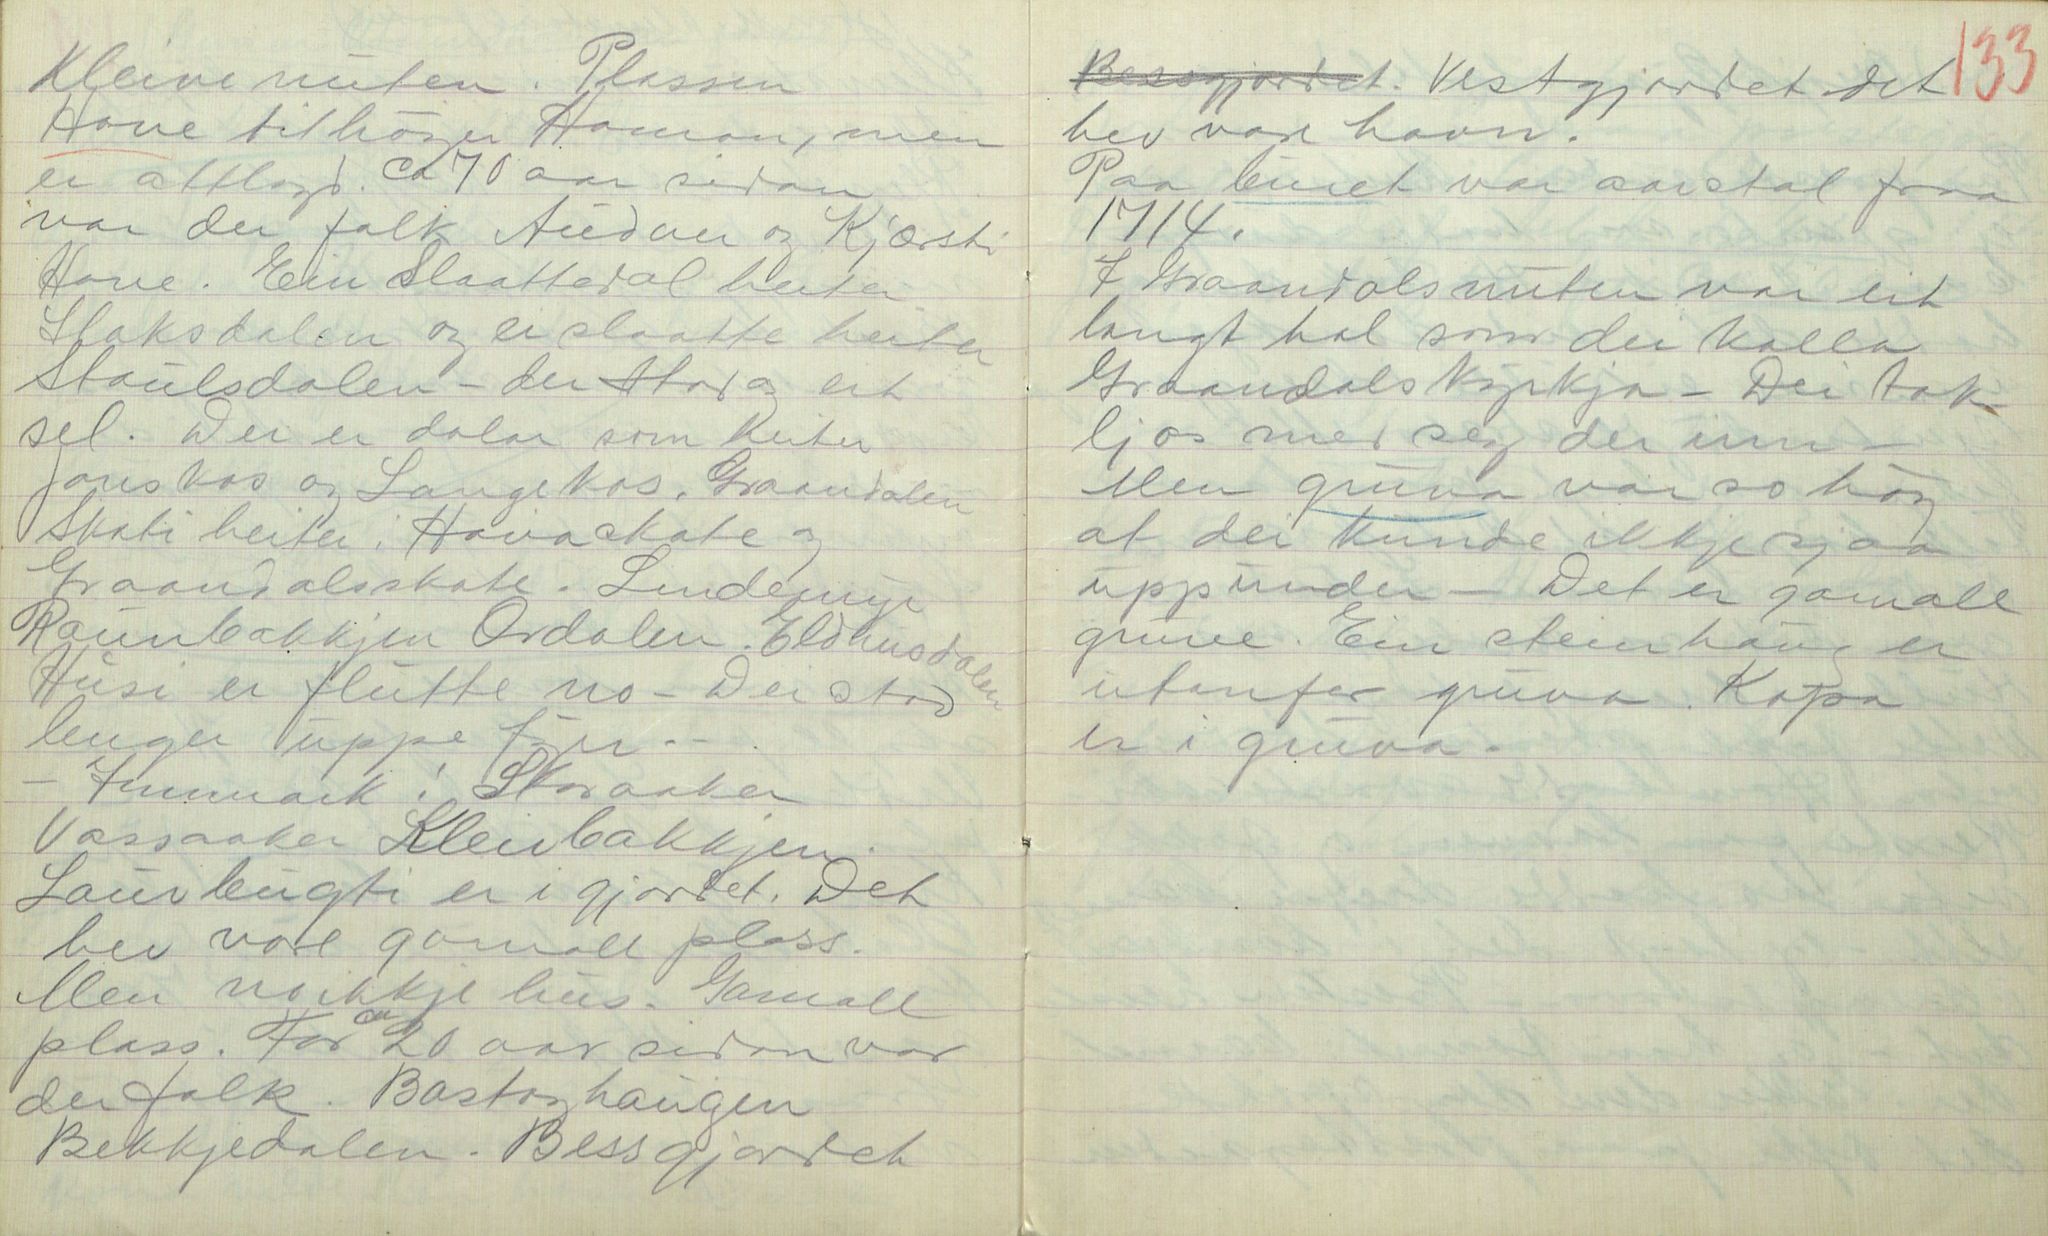 Kleivenuten. Plassen
Hove tilhöyrer Haman, men
er attlagd. Ca 70 aar sidan
var der folk Audver og Kjersti
Hove. Ein Slaattedal heiter
Slaksdalen og ei slaatte heiter
Staulsdalen – der stod og eit
sel. Dei er dalar som heiter
Jonskos og Langekos. Graandalen
Skati heiter: Hovaskate og
Graandalsskate. Lindemyr
Raunbakkjen Ordalen. Eldhusdalen
Husi er flutte no – Dei stod
lenger uppe fyrr. –
– Innmark: Storaaker
Vassaaker Kleivbakkjen.
Laurbugti er i gjordet. Det
hev vore gamall plass.
Men no ikkje hus. Gamall
plass. For ca 20 aar sidan var
der folk. Bastoghaugen
Bekkjedalen. Bessgjordet
133
Bessgjordet. Vestgjordet det
hev vore havn.
Paa buret var aarstal fraa
1714.
I Graandalsnuten var eit
langt hol som dei kalla
Graandalskyrkja – Dei tok
ljos med seg der inn –
Men gruva var so hög
at dei kunde ikkje sjaa
uppunder – Det er gamall
gruve. Ein steinhaug er
utanfor gruva. Kopa
er i gruva.